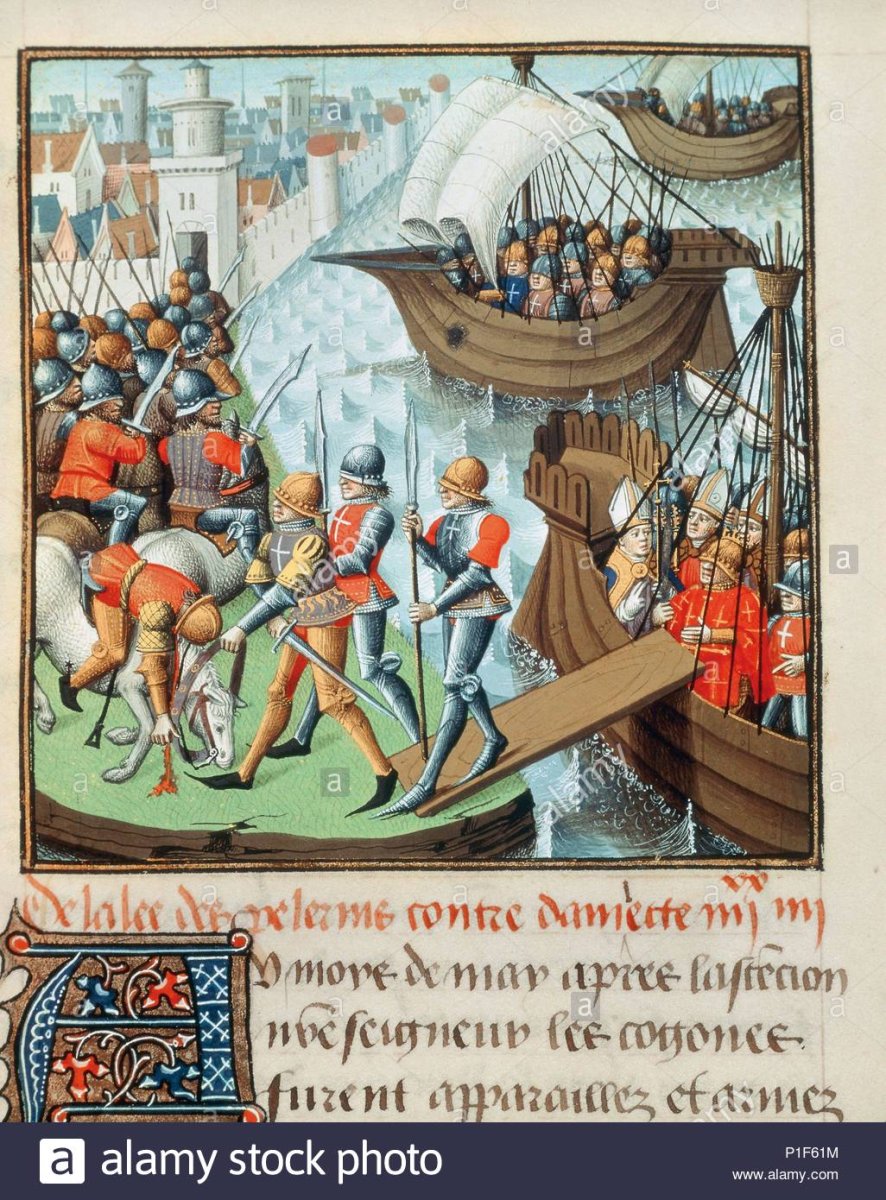 De lalee des pelerins contre damiecte iiij xx iiij
Au moys de may apres lascecion
nr̄e seigneur les cogones
furent apparaillez et armez
a alamy stock photo
P1F61M
www.alamy.com